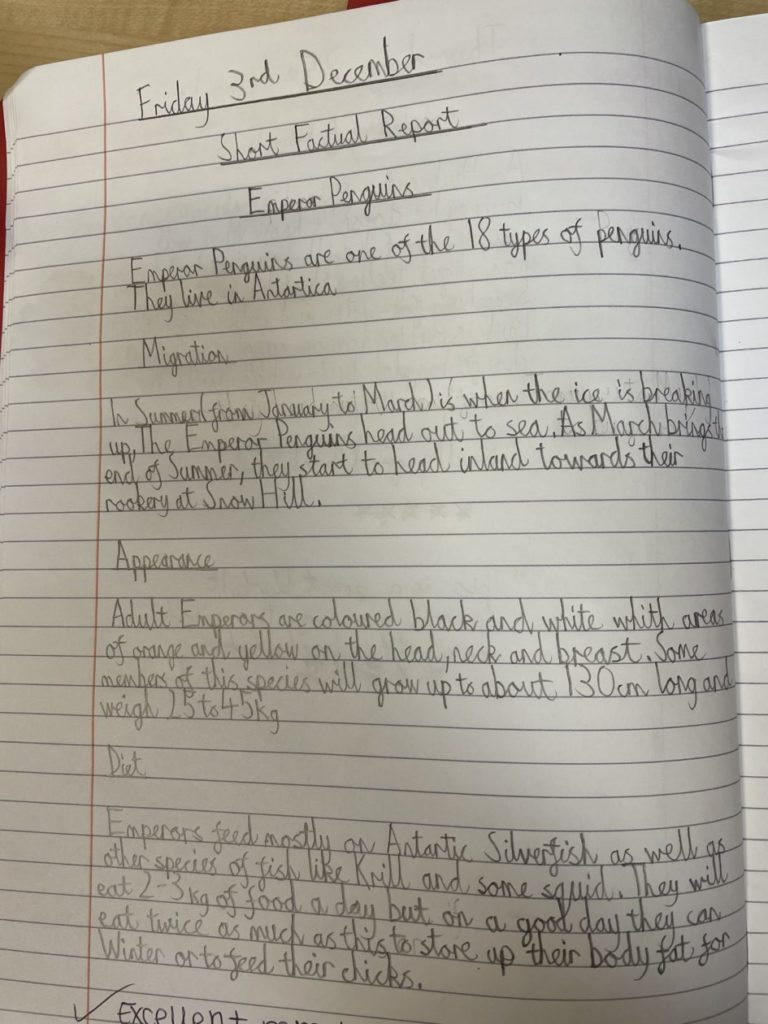 Friday 3rd December
Short Factual Report
Emperor Penguins
Emperor Penguins are one of the 18 types of penguins.
They live in Antartica
Migration
In Summer (from January to March) is when the ice is breaking
up, The Emperor Penguins head out to sea. As March brings th
end of Summer, they start to head inland towards their
rookery at Snow Hill.
Appearance
Adult Emperors are coloured black and white whith areas
of orange and yellow on the head, neck and breast. Some
members of this species will grow up to about 130cm long and
weigh 25 to 45kg
Diet
Emperors feed mostly on Antartic Silverfish as well as
other species of fish like Krill and some squid. They will
eat 2-3kg of food a day but on a good day they can
eat twice as much as this to store up their body fat for
Winter or to feed their chicks.
✓ Excellent